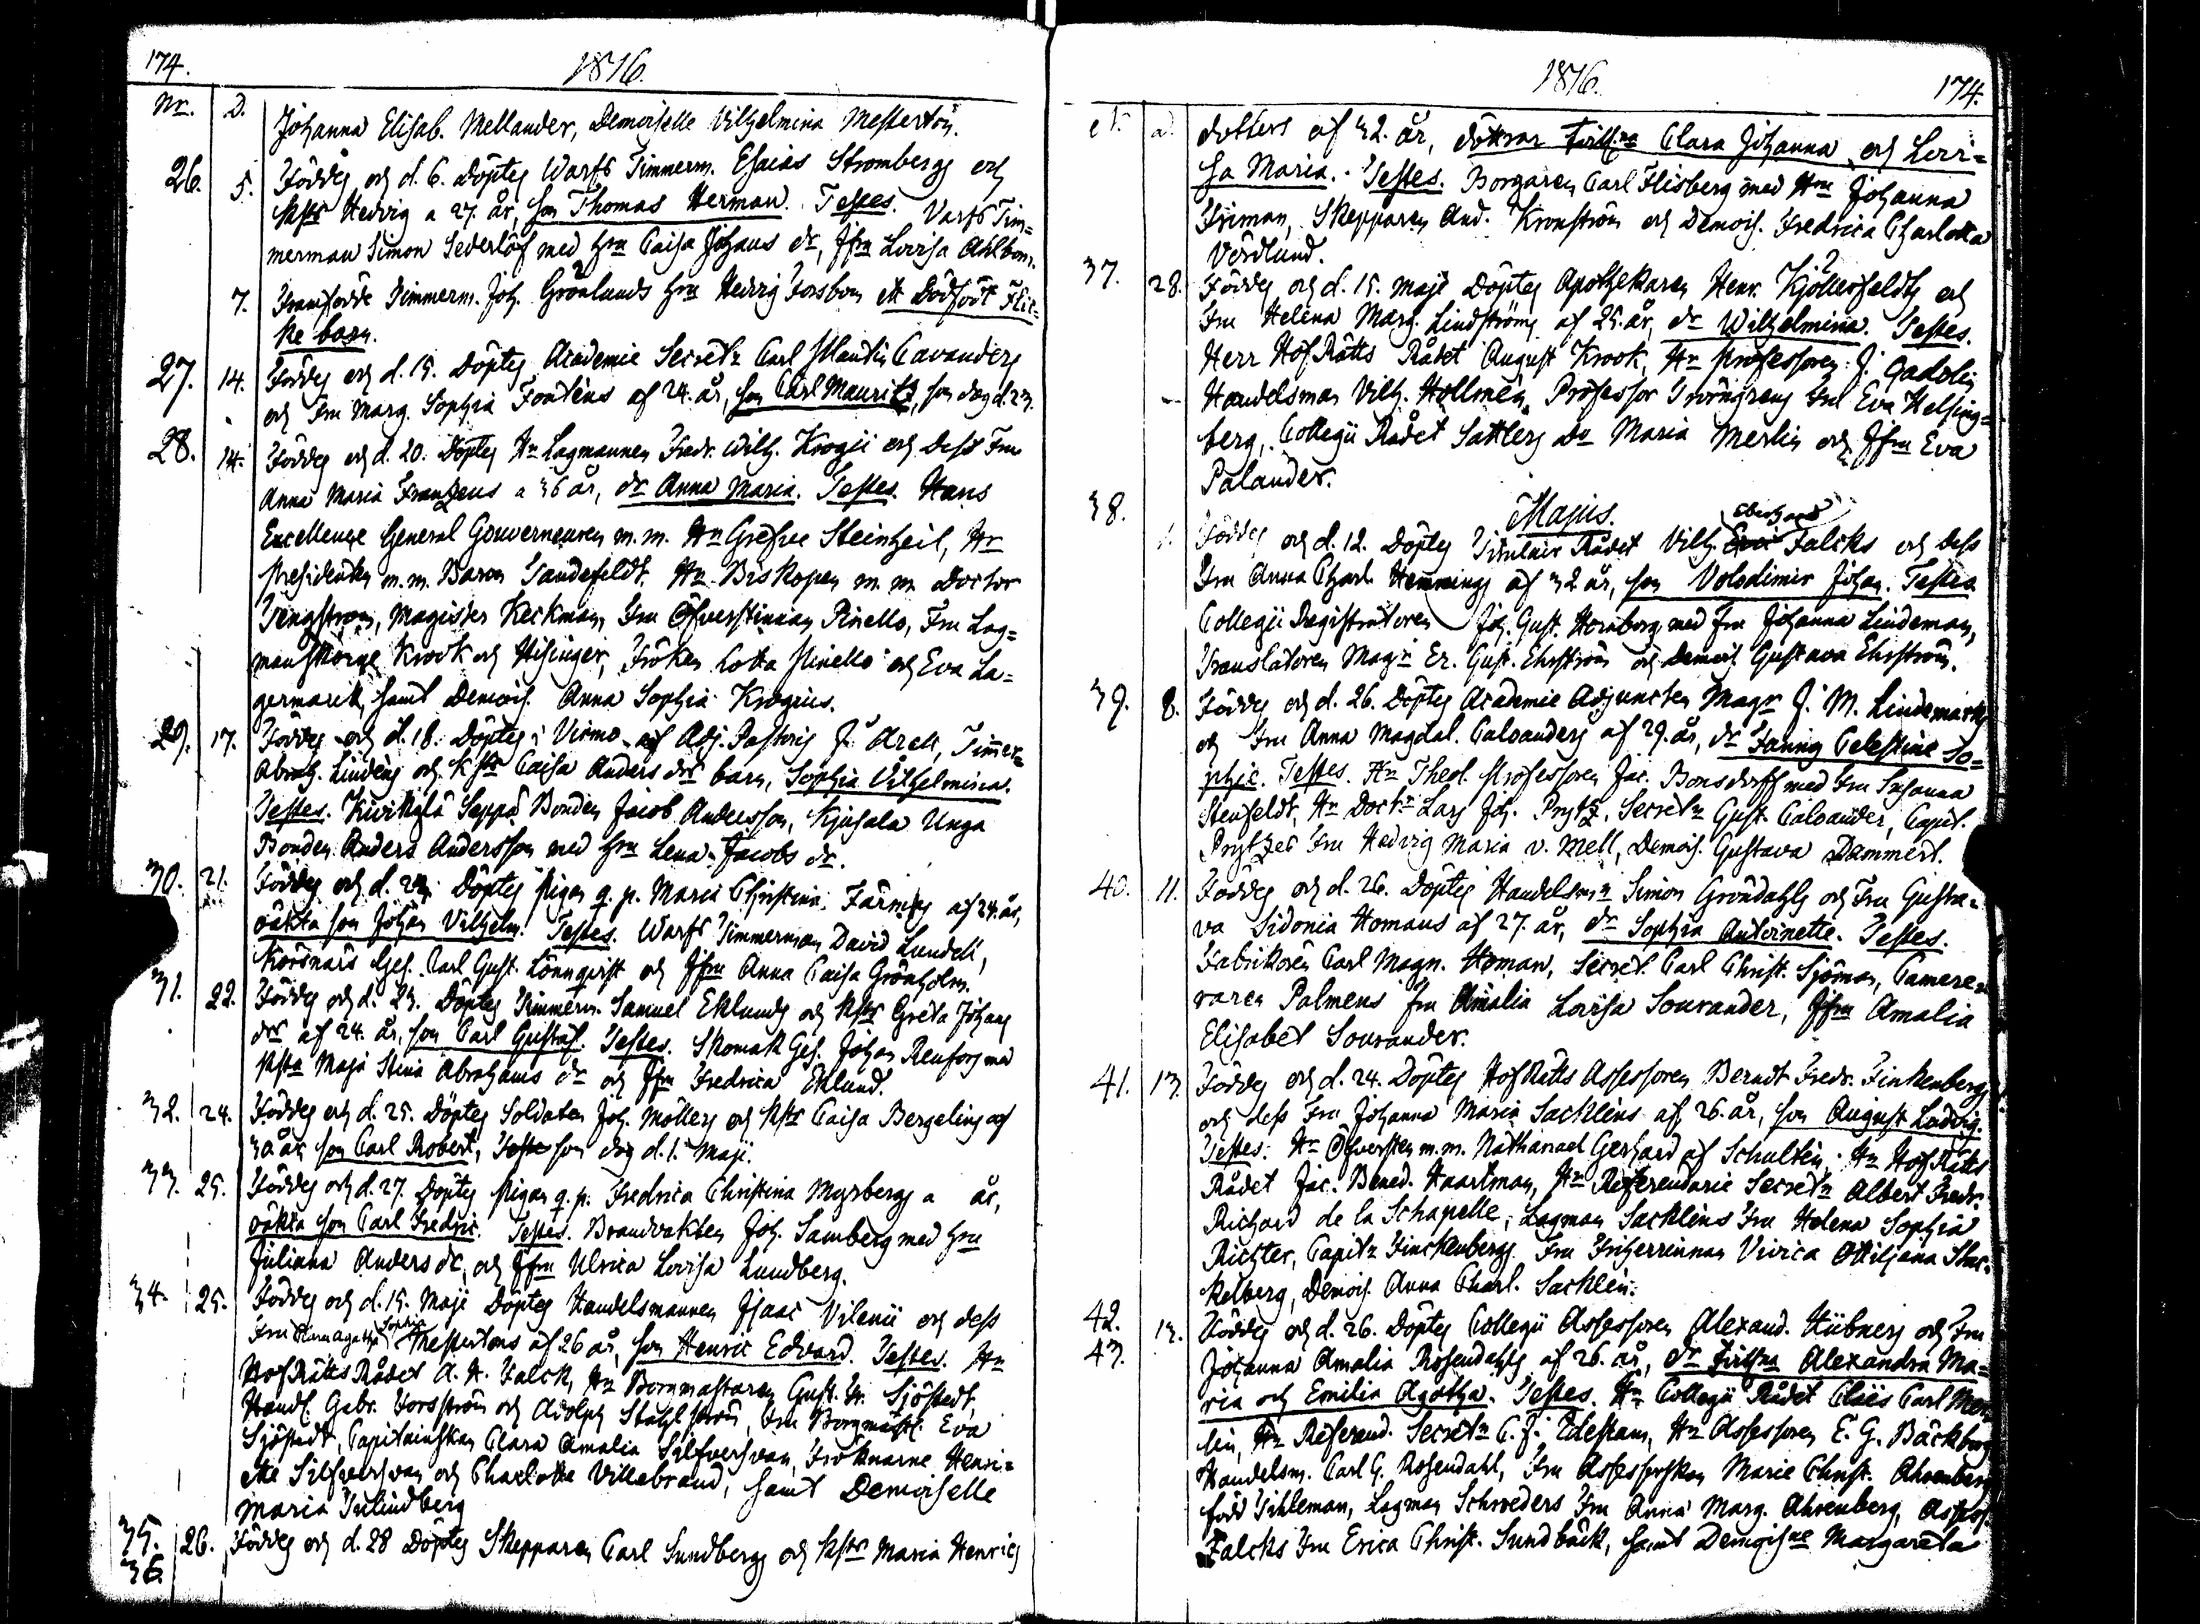 174.
1816.
Nr. D.
Johanna Elisab. Mellander, Demoiselle Vilhelmina Mesterton.
26. 5. Föddes och d. 6. Döptes Warfs Timmerm. Esaias Strombergs och
Hedvig a 27. år, son Thomas Herman. Testes. Varfs Tim=
merman Simon Sederlöf med hru Caisa Johans dr, Jfru Lovisa Ahlbom.
7. Framfödde Timmerm. Joh. Grönlunds hru Hedvig Forsbom ett Dödfödt Flic=
ke barn.
27. 14. Föddes och d. 15. Döptes Academie Secret: Carl Cavanders
och Fru Marg. Sophia Fonténs af 24. år, son Carl Mauritz, son dog d. 23.
28. 14. Föddes och d. 20. Döptes Hr Lagmannen Fredr. Wilh. Krogii och Dess Fru
Anna Maria Franzens a 36 år, dr Anna Maria. Testes. Hans
Excellence General Gouverneuren m.m. Hr Grefve Steinheil, Hr
Presidenten m.m. Baron Tandefeldt. Hr Biskopen m.m. Doctor
Tengström, Magister Keckman, Fru Öfverstinnan Pinello, Fru Lag=
Krook och Hisinger, Fröken Lotta Pinello och Eva La=
germarck, samt Demois. Anna Sophia Krogius.
29. 17. Föddes och d. 18. Döptes i Virmo af Adj. Pastoris J. Timmer=
Abrah. Lindens och Caisa Anders drs barn, Sophia Vilhelmina.
Testes. Seppä Bonden Jacob Andersson, Unga
Bonden Anders Andersson med hru Lena Jacobs dr.
30. 21. Föddes och d. Döptes Pigan q. p. Maria Christina af 24. år,
oäkta son Johan Vilhelm. Testes. Warfs Timmerman David Lundell,
Ges. Carl Gust. Lönnqvist och Jfru Anna Caisa Grönholm.
31. 22. Föddes och d. 23. Döptes Timmerm. Samuel Eklunds och Greta Johans
drs af 24. år, son Carl Gustaf. Testes. Skomak Ges. Johan Renfors med
Maja Stina Abrahams dr och Jfru Fredrica Eklund.
32. 24. Föddes och d. 25. Döptes Soldaten Joh. Möllers och Caisa Bergelins af
30 år, son Carl Robert, son dog d. 1. Maji.
33. 25. Föddes och d. 27. Döptes Pigan q. p. Fredrica Christina Myrbergs a år,
oäkta son Carl Fredric. Testes. Brandvakten Joh. Samberg med hru
Juliana Anders dr, och Jfru Ulrica Lovisa Lundberg.
34. 25. Föddes och d. 15. Maji Döptes Handelsmannen Isaac Vilenii och dess
Sophia
Fru Mestertons af 26 år, son Henric Edvard. Testes. Hr
HofRätts Rådet A. H. Falck, Hr Borgmästaren Gust. Sjöstedt,
Handl. Gabr. Forsström och Adolph Ståhlström, Fru Borgmäst. Eva
Sjöstedt, Capitainskan Clara Amalia Silfversvan, Fröknarne Henri=
ette Silfversvan och Charlotta Villebrand, samt Demoiselle
Maria Julindberg
35. 26. Föddes och d. 28 Döptes Skepparen Carl Sundbergs och Maria Henrics
36.
1816.
174.
dotters af 32. år, döttrar Clara Johanna och Lovi=
sa Maria. Testes. Borgaren Carl Flisberg med Hru Johanna
Friman, Skepparen And. Kronström och Demois. Fredrica Charlotta
Vördlund.
37. 28. Föddes och d. 15. Maji Döptes Apothekaren Henr. Kjöllerfeldts och
Fru Helena Marg. Lindströms af 25. år, dr Wilhelmina. Testes.
Herr Hof Rätts Rådet August Krook, Hr Professoren J. Gadolin
Handelsman Vilh. Hollmén, Professor Fru Eva Helsing=
berg, Collegii Rådet Sattlers Dr Maria Merlin och Jfru Eva
Palander.
Majus.
Eberhard
38. 1. Föddes och d. 12. Döptes Titulair Rådet Vilh. Falcks och dess
Fru Anna Charl. Hemmings af 32 år, son Volodimir Johan. Testes
Collegii Registratoren Joh. Gust. Hornborg med Fru Johanna Lindeman,
Translatoren Magr Er. Gust. Ehrström och Demois. Gustava Ehrström.
39. 8. Föddes och d. 26. Döptes Academie Adjuncten Magr J. M. Lindemarks
och Fru Anna Magdal. Caloanders af 29. år, dr Fanny Celestine So=
phie. Testes. Hr Theol. Professoren Jac. Bonsdorff med Fru Susanna
Stenfeldt, Hr Doctr Lars Joh. Prytz, Secret: Gust. Caloander, Capit.
Prytzes Fru Hedvig Maria v. Mell, Demois. Gustava Dammert.
40. 11. Föddes och d. 26. Döptes Handelsm: Simon Gröndahls och Fru Gusta=
va Sidonia Homans af 27. år, dr Sophia Antoinette. Testes.
Fabrikören Carl Magn. Homan, Secret. Carl Christ. Sjöman, Camere=
raren Palmens fru Amalia Lovisa Sourander, Jfru Amalia
Elisabet Sourander.
41. 13. Föddes och d. 24. Döptes HofRätts Assessoren Berndt Fredr. Finkenbergs
och dess Fru Johanna Maria Sackléns af 26. år, son August Ludvig.
Testes. Hr Öfversten m.m. Nathanael Gerhard af Schultén, Hr Hof Rätts
Rådet Jac. Bened. Haartman, Hr Referendarie Secret: Albert Fredr.
Richard de la Schapelle, Lagman Sackléns Fru Helena Sophia
Richter, Capit: Finckenbergs Fru Friherrinnan Vivica Ottiljana Stac=
kelberg, Demois. Anna Charl. Sacklén.
42. 13. Föddes och d. 26. Döptes Collegii Assessoren Alexand. Hübners och Fru
43. Johanna Amalia Rosendahls af 26. år, dr Alexandra Ma=
ria och Emilia Agatha. Testes. Hr Collegii Rådet Claës Carl Mer=
lin, Hr Referend. Secret: C. J. Idestam, Hr Assessoren E. G. Bäckborg
Handelsm. Carl G. Rosendahl, Fru Assessorskan Marie Christ. Ahrenberg
född Tihleman, Lagman Schroeders Fru Anna Marg. Ahrenberg, Assess.
Falcks Fru Erica Christ. Sundbäck, samt Margareta